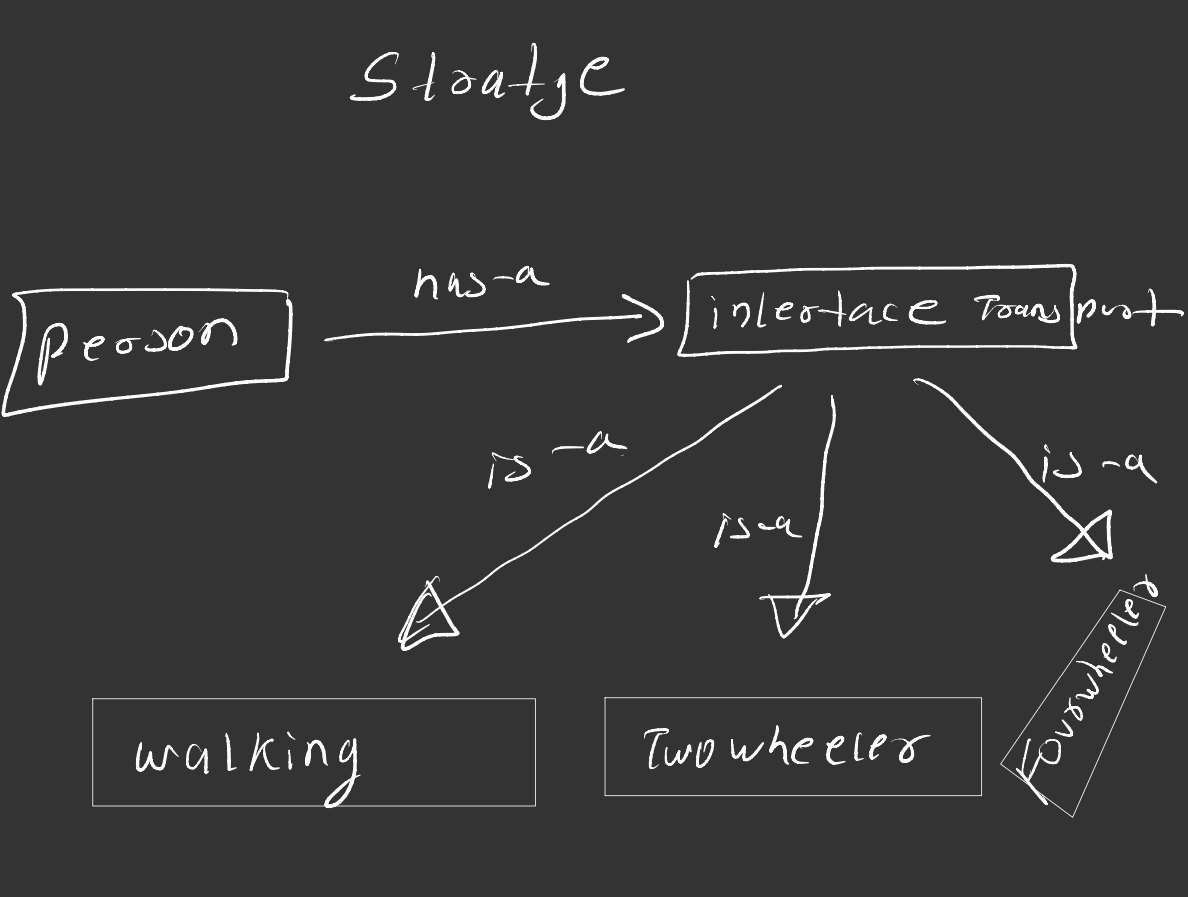 Stratge
has-a
person
interface Transport
is-a
is-a
is-a
walking
Twowheeler
Fourwheeler